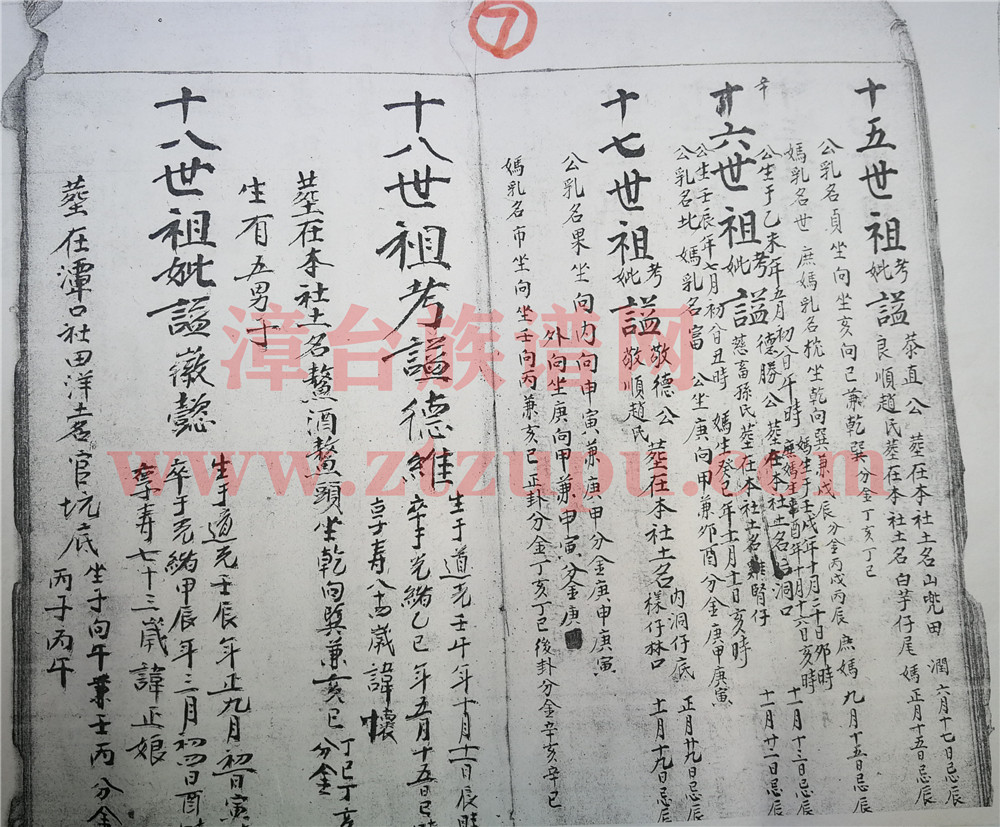 ⑦
十五世祖考妣謚
恭直公 葬在本社土名山兜田 潤六月十七日忌辰
良順趙氏葬在本社土名白芋仔尾 媽正月十五日忌辰
公乳名貞坐向坐亥向巳兼乾巽分金丁亥丁巳
媽乳名世 庶媽乳名枕坐乾向巽兼戌辰分金丙戌丙辰 庶媽九月十五日忌辰
十六世祖考妣謚
辛
公生于乙未年五月初 午時 媽生于壬戌年十月二十日卯時
德勝公葬在本社土名 洞口 十一月十三日忌辰
慈畜孫氏葬在本社土名 腎仔 十一月廿一日忌辰
公生壬辰年七月初 丑時 媽生癸巳年十一月十一日亥時
公乳名比 媽乳名富 公坐庚向甲兼卯酉分金庚甲庚寅
十七世祖考妣謚
敬德公 內洞仔底 正月廿九日忌辰
敬順趙氏 葬在本社土名檨仔林口 十一月十九日忌辰
公乳名果坐向內向申寅兼庚甲分金庚申庚寅
外向坐庚向甲兼申寅分金庚
媽乳名市坐向坐壬向丙兼亥巳正卦分金丁亥丁巳後卦分金辛亥辛巳
十八世祖考謚德維
生于道光壬午年十月十二日辰時
卒于光緒乙巳年五月十五日巳時
享壽八十四歲諱懷
葬在本社土名鰲酒鰲頭坐乾向巽兼亥巳分金丁巳丁亥
生有五男子
十八世祖妣謚徽懿
生于道光壬辰年正九月初一日寅
卒于光緒甲辰年三月初四日酉時
享壽七十三歲諱正娘
葬在潭口社田洋土名官坑底坐子向午兼壬丙分金
丙子丙午
漳台族谱网
www.ztzupu.com